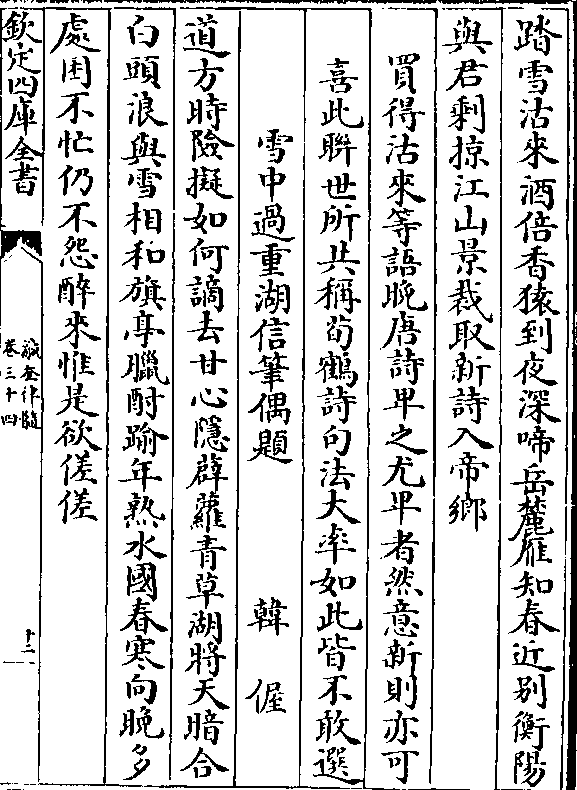 踏雪沽來酒倍香猿到夜深啼岳麓雁知春近别衡陽
與君剩掠江山景裁取新詩入帝鄉
買得沽來等語晚唐詩卑之尤卑者然意新則亦可
喜此聨世所共稱荀鶴詩句法大率如此皆不敢選
雪中過重湖信筆偶題 韓偓
道方時險擬如何謫去甘心隱薜蘿青草湖將天暗合
白頭浪與雪相和旗亭臘酎踰年熟水國春寒向晚多
處困不忙仍不怨醉來惟是欲傞傞
欽定四庫全書
瀛奎律髓
卷三十四
十二